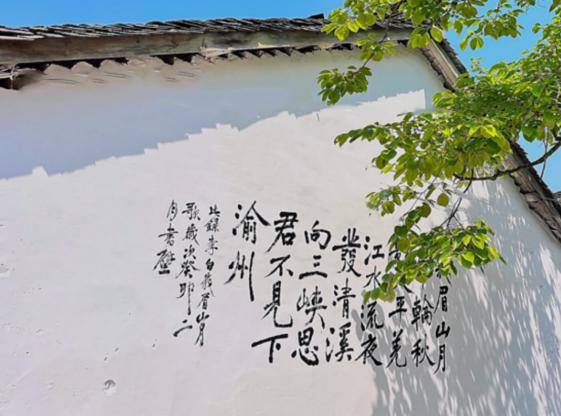 眉山月
輪秋
平羌
江水流夜
發清溪
向三峽思
君不見下
渝州
此錄李白峨眉山月
歌歲次癸卯二
月書壁